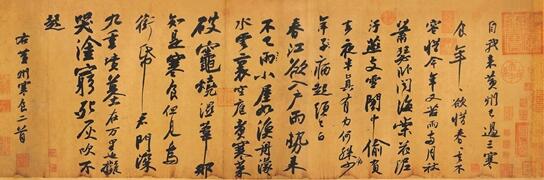 自我來黃州已過三寒
食年〻欲惜春〻去不
容惜今年又苦雨兩月秋
蕭瑟卧聞海棠花泥
汙燕支雪闇中偷負
去夜半真有力何殊少
年子病起須已白
春江欲入戶雨勢来
不已雨小屋如漁舟濛〻
水雲裏空庖煮寒菜
破竈燒濕葦那
知是寒食但見烏
銜帋君門深
九重墳墓在万里也擬
哭塗窮死灰吹不
起
右黃州寒食二首